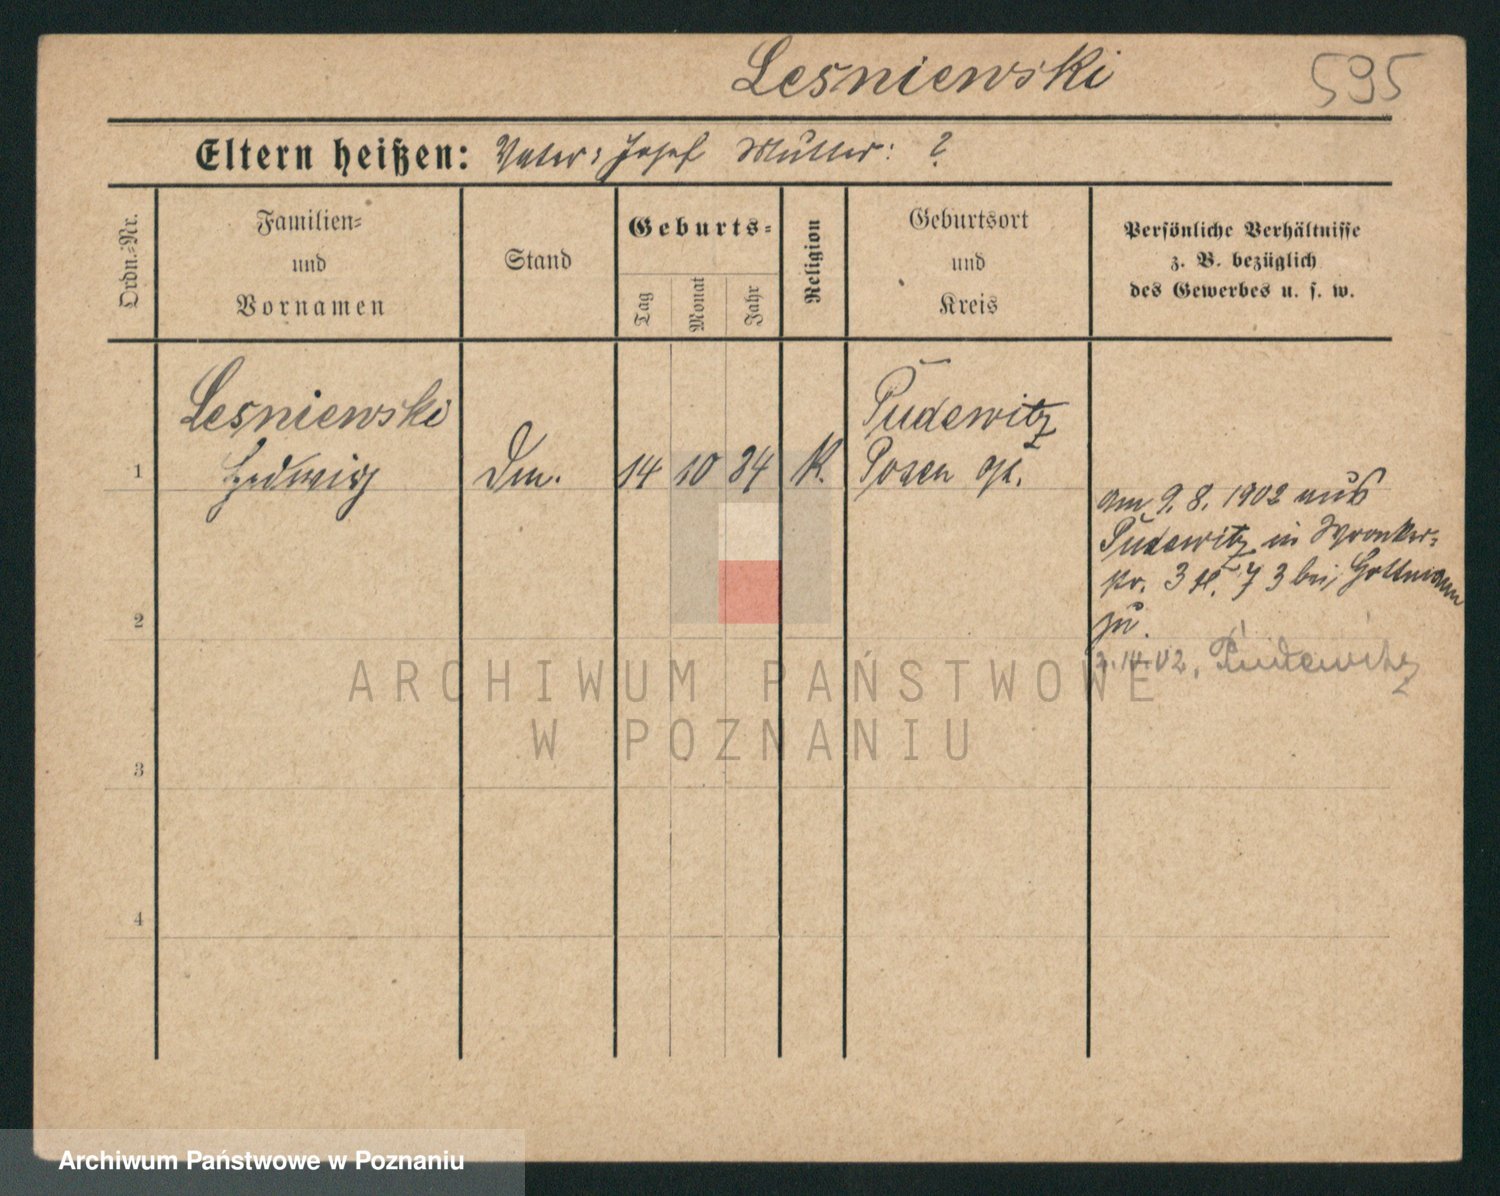 Lesniewski
595
Eltern heißen: Vater: Josef Mutter: ?
Ordn.-Nr.
Familien-
und
Vornamen
Stand
Geburts-
Tag
Monat
Jahr
Religion
Geburtsort
und
Kreis
Persönliche Verhältnisse
z. B. bezüglich
des Gewerbes u. s. w.
1
Lesniewski
Hedwig
14
10
84
K.
Pudewitz
Posen
am 9. 8. 1902 aus
Pudewitz in Wronker-
str. 3 bei
zu.
02. Pudewitz
2
3
4
ARCHIWUM PAŃSTWOWE
W POZNANIU
Archiwum Państwowe w Poznaniu